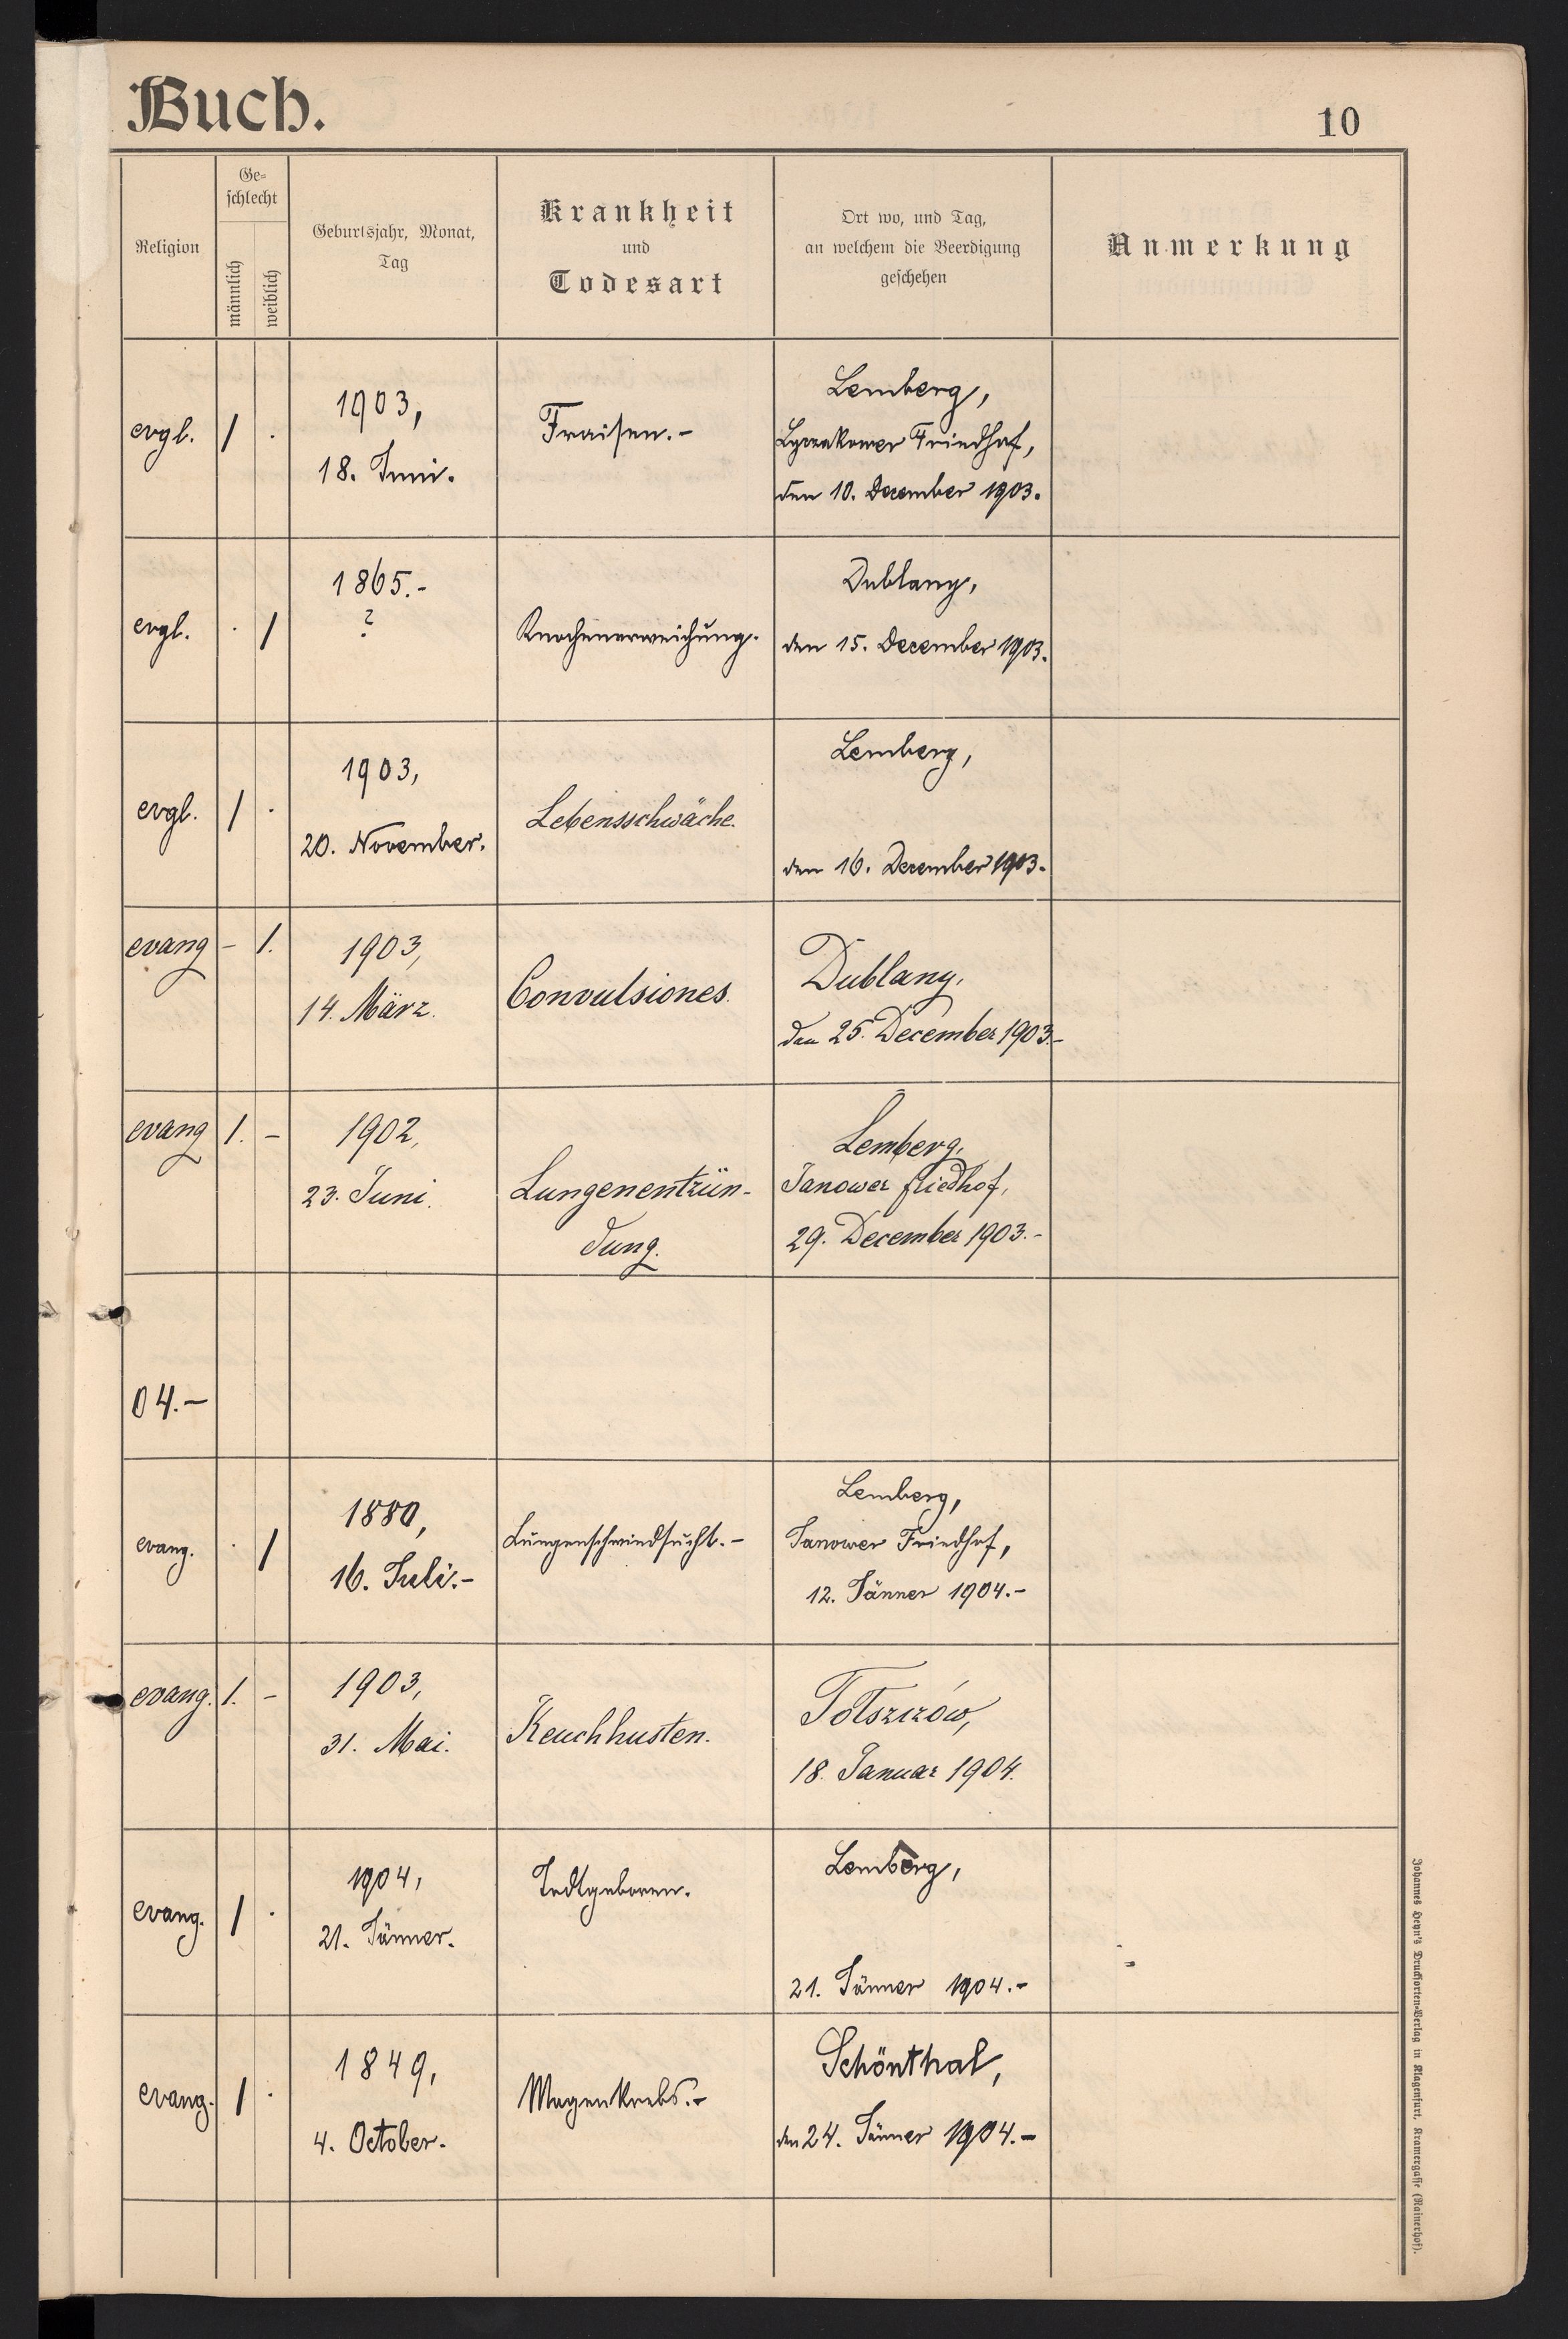 Buch.
10
Religion
Ge-
schlecht
männlich
weiblich
Geburtsjahr, Monat,
Tag
Krankheit
und
Todesart
Ort wo, und Tag,
an welchem die Beerdigung
geschehen
Anmerkung
evgl.
1
.
1903,
18. Juni.
Fraisen.-
Lemberg,
Lyczakower Friedhof,
den 10. December 1903.
evgl.
.
1
1865.-
?
Knochenerweichung.
Dublany,
den 15. December 1903.
evgl.
1
.
1903,
20. November.
Lebensschwäche.
Lemberg,
den 16. December 1903.
evang
-
1.
1903,
14. März.
Convulsiones.
Dublany,
den 25. December 1903.-
evang
1.
-
1902,
23. Juni.
Lungenentzün-
dung.
Lemberg,
Janower Friedhof,
29. December 1903.-
04.-
evang.
.
1
1880,
16. Juli.-
Lungenschwindsucht.-
Lemberg,
Janower Friedhof,
12. Jänner 1904.-
evang.
1.
-
1903,
31. Mai.
Keuchhusten.
18. Januar 1904.
evang.
1
.
1904,
21. Jänner.
Todtgeboren.
Lemberg,
21. Jänner 1904.-
evang.
1
.
1849,
4. October.
Magenkrebs.-
Schönthal,
den 24. Jänner 1904.-
Johannes Heyn's Drucksorten-Verlag in Klagenfurt, Kramergasse (Rainerhof).